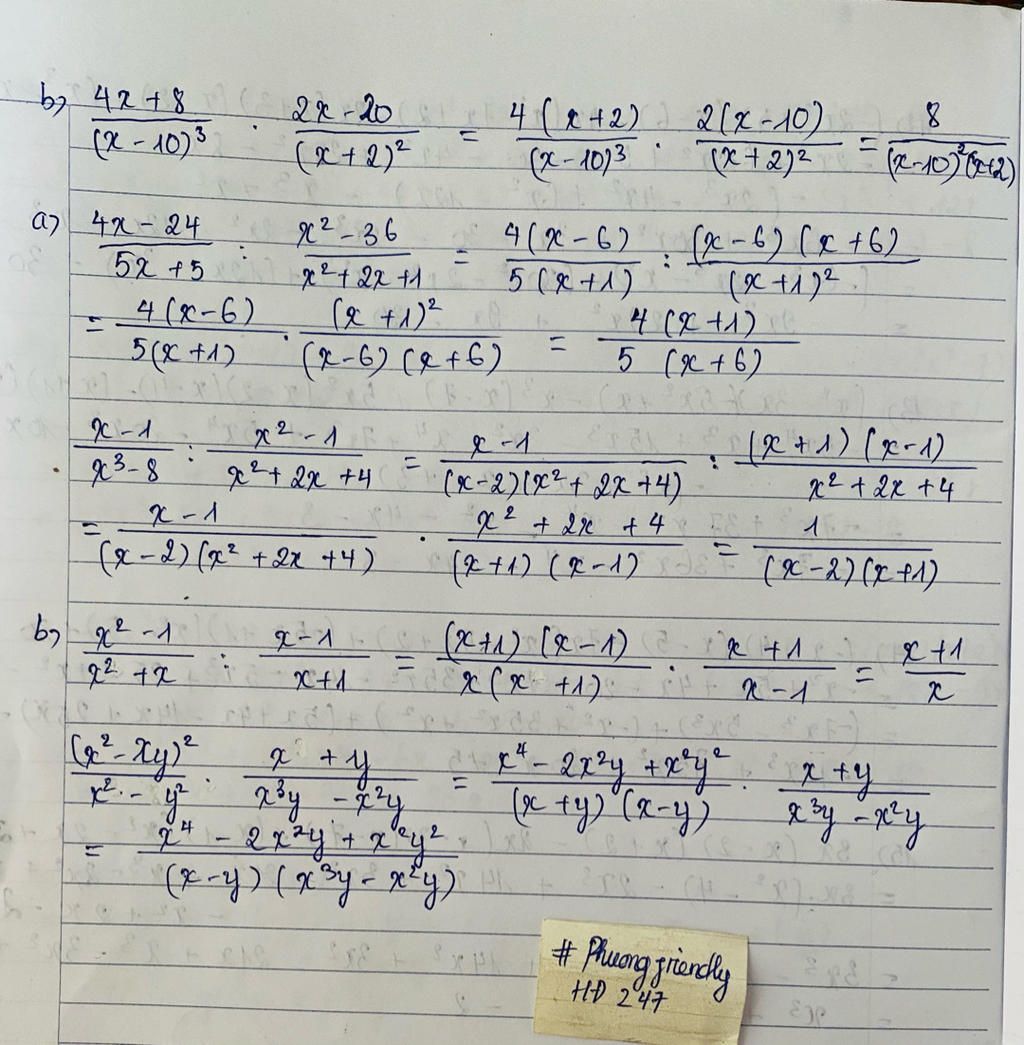 b) (4x + 8)/(x - 10)³ · (2x - 20)/(x + 2)² = 4(x + 2)/(x - 10)³ · 2(x - 10)/(x + 2)² = 8/((x - 10)²(x + 2))
a) (4x - 24)/(5x + 5) : (x² - 36)/(x² + 2x + 1) = 4(x - 6)/(5(x + 1)) : (x - 6)(x + 6)/(x + 1)²
= 4(x - 6)/(5(x + 1)) · (x + 1)²/((x - 6)(x + 6)) = 4(x + 1)/(5(x + 6))
(x - 1)/(x³ - 8) : (x² - 1)/(x² + 2x + 4) = (x - 1)/((x - 2)(x² + 2x + 4)) : (x + 1)(x - 1)/(x² + 2x + 4)
= (x - 1)/((x - 2)(x² + 2x + 4)) · (x² + 2x + 4)/((x + 1)(x - 1)) = 1/((x - 2)(x + 1))
b) (x² - 1)/(x² + x) : (x - 1)/(x + 1) = (x + 1)(x - 1)/(x(x + 1)) · (x + 1)/(x - 1) = (x + 1)/x
(x² - xy)²/(x² - y²) · (x + y)/(x³y - x²y) = (x⁴ - 2x²y + x²y²)/((x + y)(x - y)) · (x + y)/(x³y - x²y)
= (x⁴ - 2x²y + x²y²)/((x - y)(x³y - x²y))
# Phuong friendly
HĐ 247